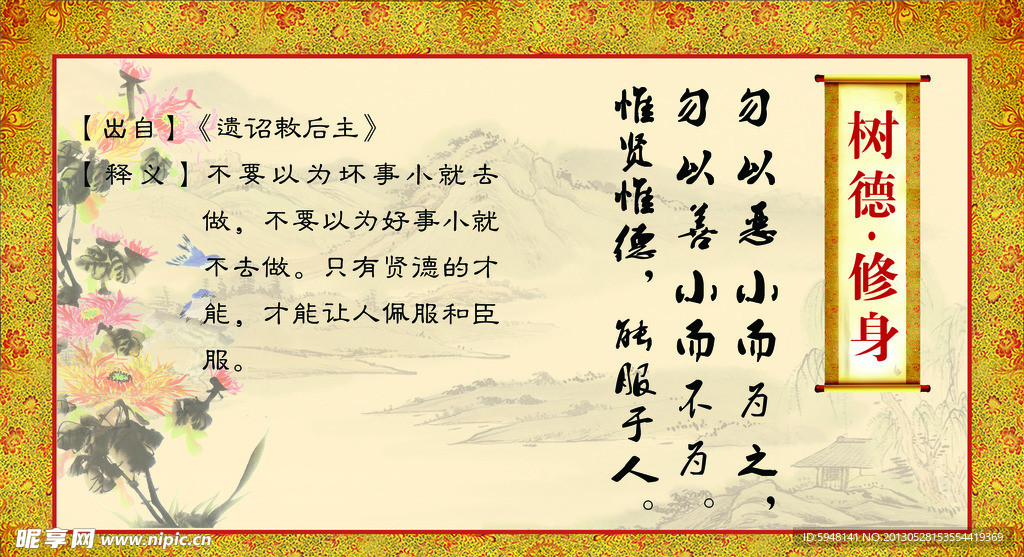 树德·修身
勿以恶小而为之，
勿以善小而不为。
惟贤惟德，能服于人。
【出自】《遗诏敕后主》
【释义】不要以为坏事小就去
做，不要以为好事小就
不去做。只有贤德的才
能，才能让人佩服和臣
服。
昵享网 www.nipic.cn
ID:5948141 NO:20130528153554419369